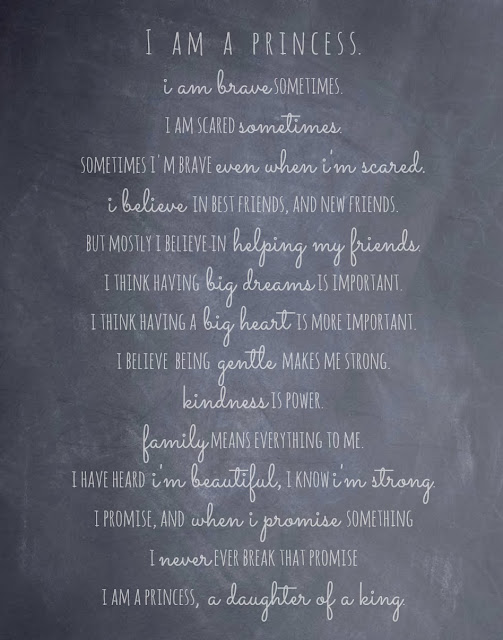 I AM A PRINCESS.
i am brave SOMETIMES.
I AM SCARED sometimes.
SOMETIMES I'M BRAVE even when i'm scared.
i believe IN BEST FRIENDS, AND NEW FRIENDS.
BUT MOSTLY I BELIEVE IN helping my friends.
I THINK HAVING big dreams IS IMPORTANT.
I THINK HAVING A big heart IS MORE IMPORTANT.
I BELIEVE BEING gentle MAKES ME STRONG.
kindness IS POWER.
family MEANS EVERYTHING TO ME.
I HAVE HEARD i'm beautiful, I KNOW i'm strong.
I PROMISE, AND when i promise SOMETHING
I never EVER BREAK THAT PROMISE
I AM A PRINCESS, a daughter of a king.